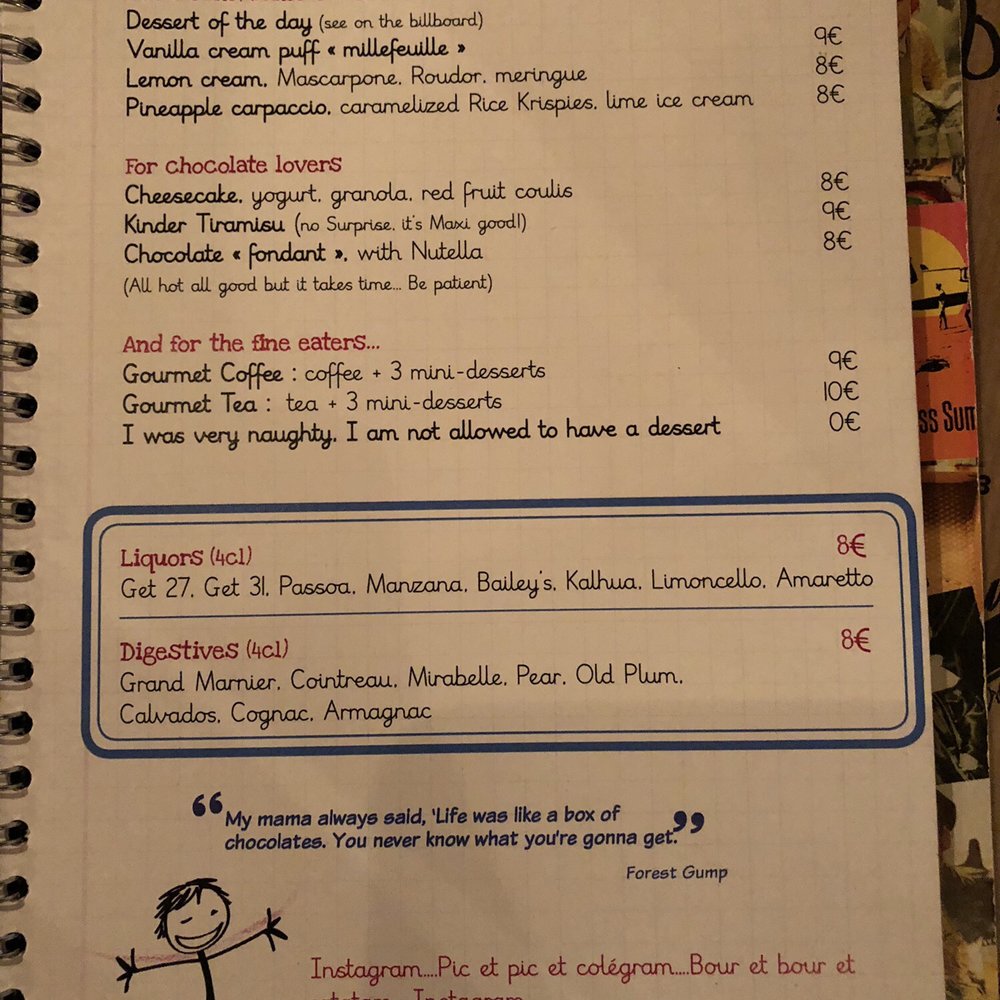 Dessert of the day (see on the billboard)
Vanilla cream puff « millefeuille » 9€
Lemon cream, Mascarpone, Roudor, meringue 8€
Pineapple carpaccio, caramelized Rice Krispies, lime ice cream 8€
For chocolate lovers
Cheesecake, yogurt, granola, red fruit coulis 8€
Kinder Tiramisu (no Surprise, it's Maxi good!) 9€
Chocolate « fondant », with Nutella 8€
(All hot all good but it takes time... Be patient)
And for the fine eaters...
Gourmet Coffee : coffee + 3 mini-desserts 9€
Gourmet Tea : tea + 3 mini-desserts 10€
I was very naughty. I am not allowed to have a dessert 0€
Liquors (4cl) 8€
Get 27, Get 31, Passoa, Manzana, Bailey's, Kalhua, Limoncello, Amaretto
Digestives (4cl) 8€
Grand Marnier, Cointreau, Mirabelle, Pear, Old Plum,
Calvados, Cognac, Armagnac
“My mama always said, 'Life was like a box of
chocolates. You never know what you're gonna get.”
Forest Gump
Instagram....Pic et pic et colégram....Bour et bour et